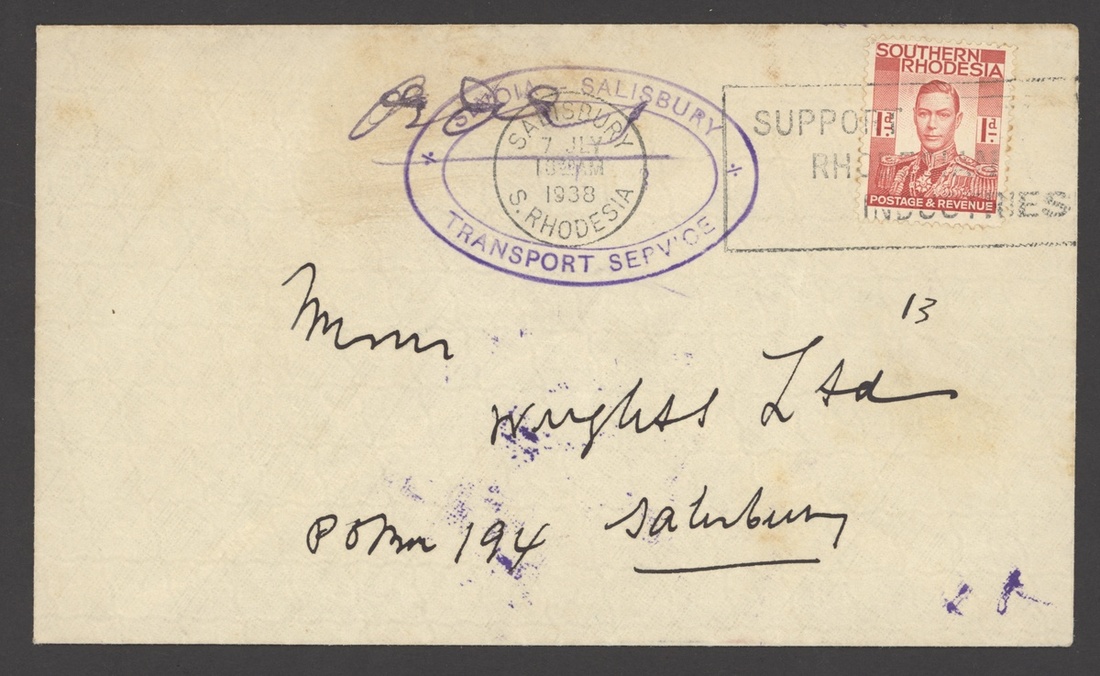 SOUTHERN
RHODESIA
1d 1d
POSTAGE & REVENUE
SINOIA - SALISBURY
TRANSPORT SERVICE
SALISBURY
7 JLY
AM
1938
S. RHODESIA
SUPPORT
INDUSTRIES
13
Messrs
Wrights Ltd
P O Box 194 Salisbury